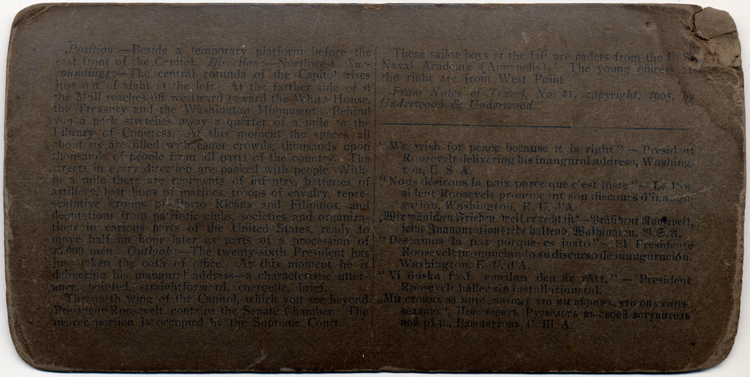 Position.—Beside a temporary platform before the
east front of the Capitol. Direction.—Northwest. Sur-
roundings.—The central rotunda of the Capitol rises
just out of sight at the left. At the farther side of it
the Mall reaches off westward toward the White House,
the Treasury and the Washington Monument. Behind
you a park stretches away a quarter of a mile to the
Library of Congress. At this moment the spaces all
about us are filled with eager crowds, thousands upon
thousands of people from all parts of the country. The
streets in every direction are packed with people. With-
in a mile there are regiments of infantry, batteries of
artillery, battalions of marines, troops of cavalry, repre-
sentative groups of Porto Ricans and Filipinos, and
deputations from patriotic clubs, societies and organiza-
tions in various parts of the United States, ready to
move half an hour later as parts of a procession of
35,000 men. Outlook.—The twenty-sixth President has
just taken the oath of office. At this moment he is
delivering his inaugural address—a characteristic utter-
ance, pointed, straightforward, energetic, brief.
The north wing of the Capitol, which you see beyond
President Roosevelt, contains the Senate Chamber. The
nearer portion is occupied by the Supreme Court.
These sailor boys at the left are cadets from the U. S.
Naval Academy (Annapolis). The young officers at
the right are from West Point.
From Notes of Travel, No. 21, copyright, 1905, by
Underwood & Underwood.
"We wish for peace because it is right"—President
Roosevelt delivering his inaugural address, Washing-
ton, U. S. A.
"Nous désirons la paix parce que c'est juste"—Le Pré-
sident Roosevelt prononçant son discours d'inaugu-
ration, Washington, E. U. d'A.
„Wir wünschen Frieden, weil er recht ist"—Präsident Roosevelt,
seine Inaugurationsrede haltend, Washington, U.S.A.
"Deseamos la paz porque es justo"—El Presidente
Roosevelt pronunciando su discurso de inauguración.
Washington, E. U. d'A.
"Vi önska fred, emedan den är rätt,"—President
Roosevelt håller sin installationstal.
въ своей вступитель
ной рѣчи, Вашингтонъ, С. Ш. А.